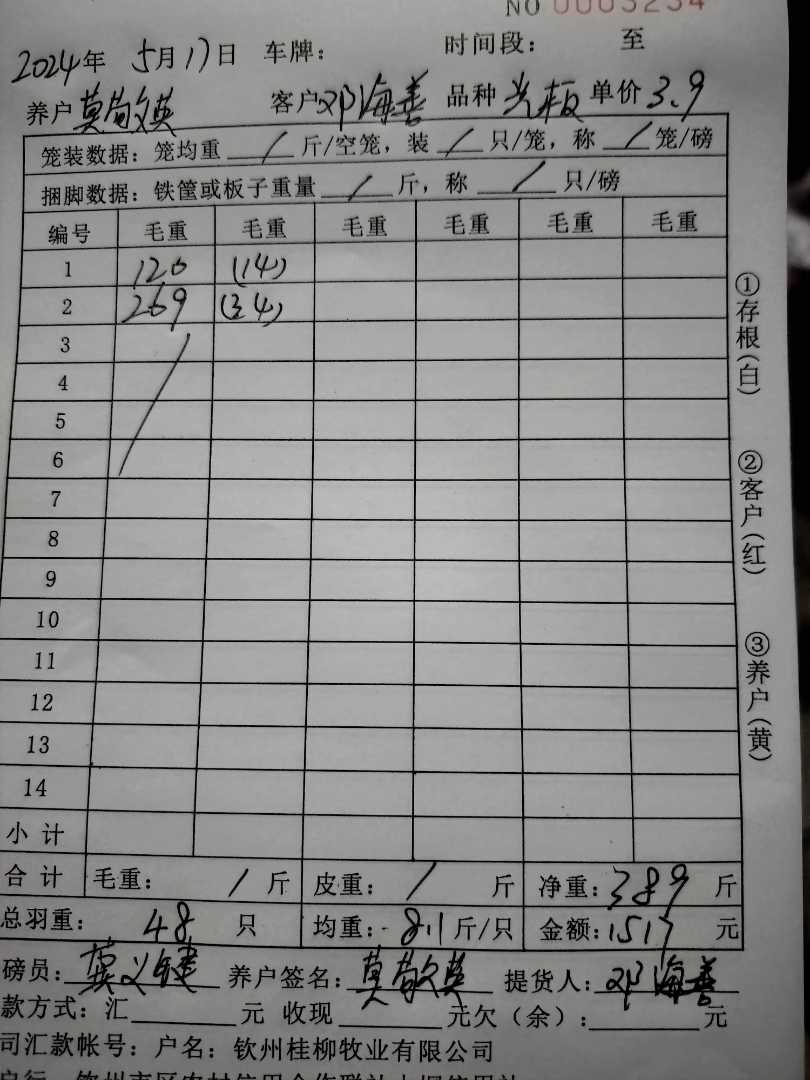 NO 0003254
2024年 5月17日 车牌： 时间段： 至
养户 莫敬英 客户 邓海善 品种 光板 单价 3.9
笼装数据：笼均重 / 斤/空笼，装 / 只/笼，称 / 笼/磅
捆脚数据：铁筐或板子重量 / 斤，称 / 只/磅
编号 毛重 毛重 毛重 毛重 毛重 毛重
1 120 (14)
2 269 (34)
3
4
5
6
7
8
9
10
11
12
13
14
小计
合计 毛重： / 斤 皮重： / 斤 净重：389 斤
总羽重： 48 只 均重：8.1 斤/只 金额：1517 元
磅员：龚义健 养户签名：莫敬英 提货人：邓海善
款方式：汇 元 收现 元欠（余）： 元
司汇款帐号：户名：钦州桂柳牧业有限公司
①存根（白）
②客户（红）
③养户（黄）